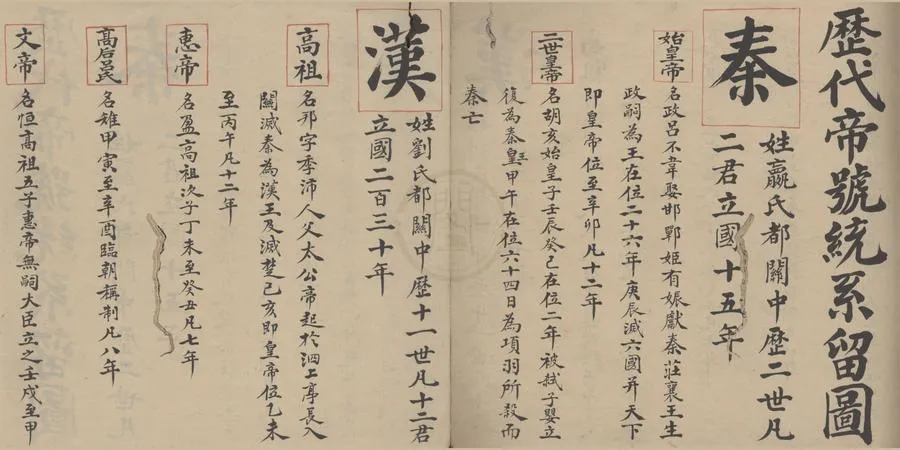 歷代帝號統系留圖
秦
姓嬴氏都關中歷二世凡
二君立國十五年
始皇帝 名政呂不韋娶邯鄲姬有娠獻秦莊襄王生
政嗣為王在位二十六年庚辰滅六國并天下
即皇帝位至辛卯凡十二年
二世皇帝 名胡亥始皇子壬辰癸巳在位二年被弒子嬰立
復為秦皇王甲午在位六十四日為項羽所殺而
秦亡
漢
姓劉氏都關中歷十一世凡十二君
立國二百三十年
高祖 名邦字季沛人父太公帝起於泗上亭長入
關滅秦為漢王及滅楚己亥即皇帝位乙未
至丙午凡十二年
惠帝 名盈高祖次子丁未至癸丑凡七年
高后呂氏 名雉甲寅至辛酉臨朝稱制凡八年
文帝 名恒高祖五子惠帝無嗣大臣立之壬戌至甲